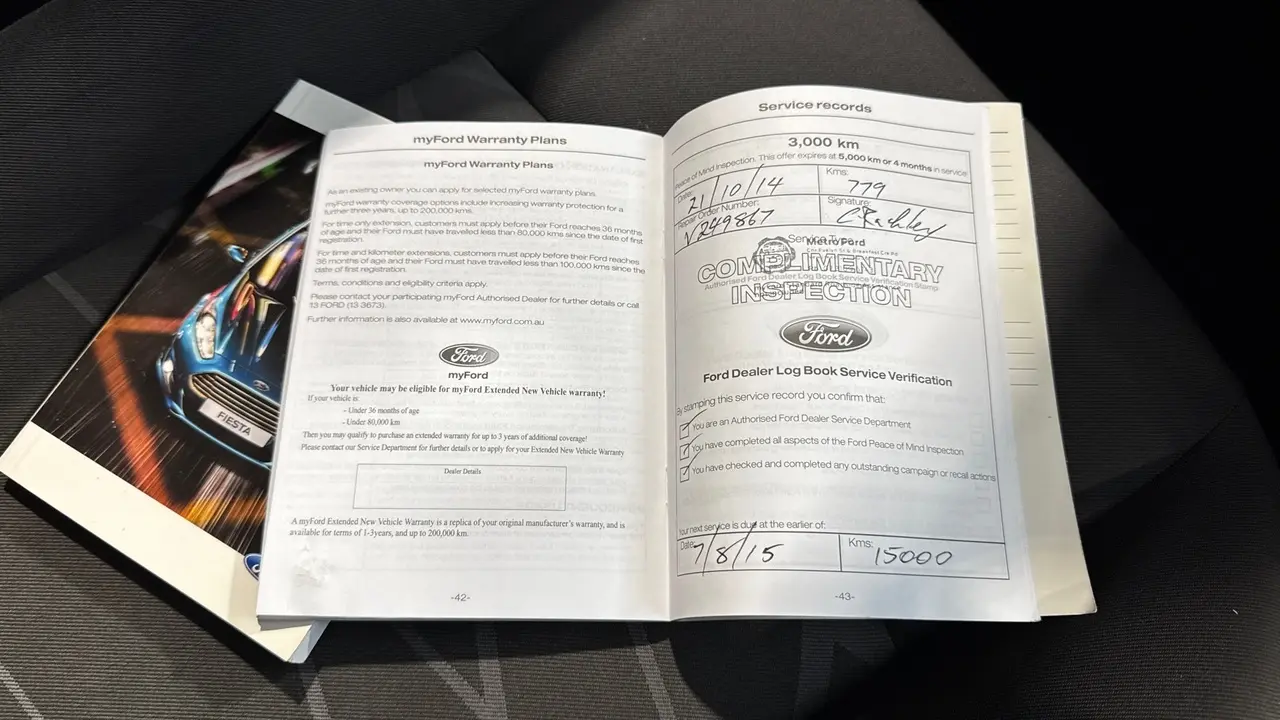 myFord Warranty Plans
myFord Warranty Plans
As an existing owner you can apply for selected myFord warranty plans.
myFord warranty coverage options include increasing warranty protection for a
further three years, up to 200,000 kms.
For time only extension, customers must apply before their Ford reaches 36 months
of age and their Ford must have travelled less than 80,000 kms since the date of first
registration.
For time and kilometer extensions, customers must apply before their Ford reaches
36 months of age and their Ford must have travelled less than 100,000 kms since the
date of first registration.
Terms, conditions and eligibility criteria apply.
Please contact your participating myFord Authorised Dealer for further details or call
13 FORD (13 3673).
Further information is also available at www.myford.com.au
Ford
myFord
Your vehicle may be eligible for myFord Extended New Vehicle warranty!
If your vehicle is:
- Under 36 months of age
- Under 80,000 km
Then you may qualify to purchase an extended warranty for up to 3 years of additional coverage!
Please contact our Service Department for further details or to apply for your Extended New Vehicle Warranty
Dealer Details
A myFord Extended New Vehicle Warranty is a replica of your original manufacturer's warranty, and is
available for terms of 1-3years, and up to 200,000 km.
-42-
Service records
3,000 km
Peace of Mind Inspection. This offer expires at 5,000 km or 4 months in service
Date: 21/10/14
Kms: 779
Repair Order Number: V249867
Signature:
Service Type
Metro Ford
COMPLIMENTARY
Authorised Ford Dealer Log Book Service Verification Stamp
INSPECTION
Ford
Ford Dealer Log Book Service Verification
By stamping this service record you confirm that:
You are an Authorised Ford Dealer Service Department
You have completed all aspects of the Ford Peace of Mind Inspection
You have checked and completed any outstanding campaign or recall actions
Your next service is due at the earlier of:
Date: 7/8/15
Kms: 15000
-43-
FIESTA